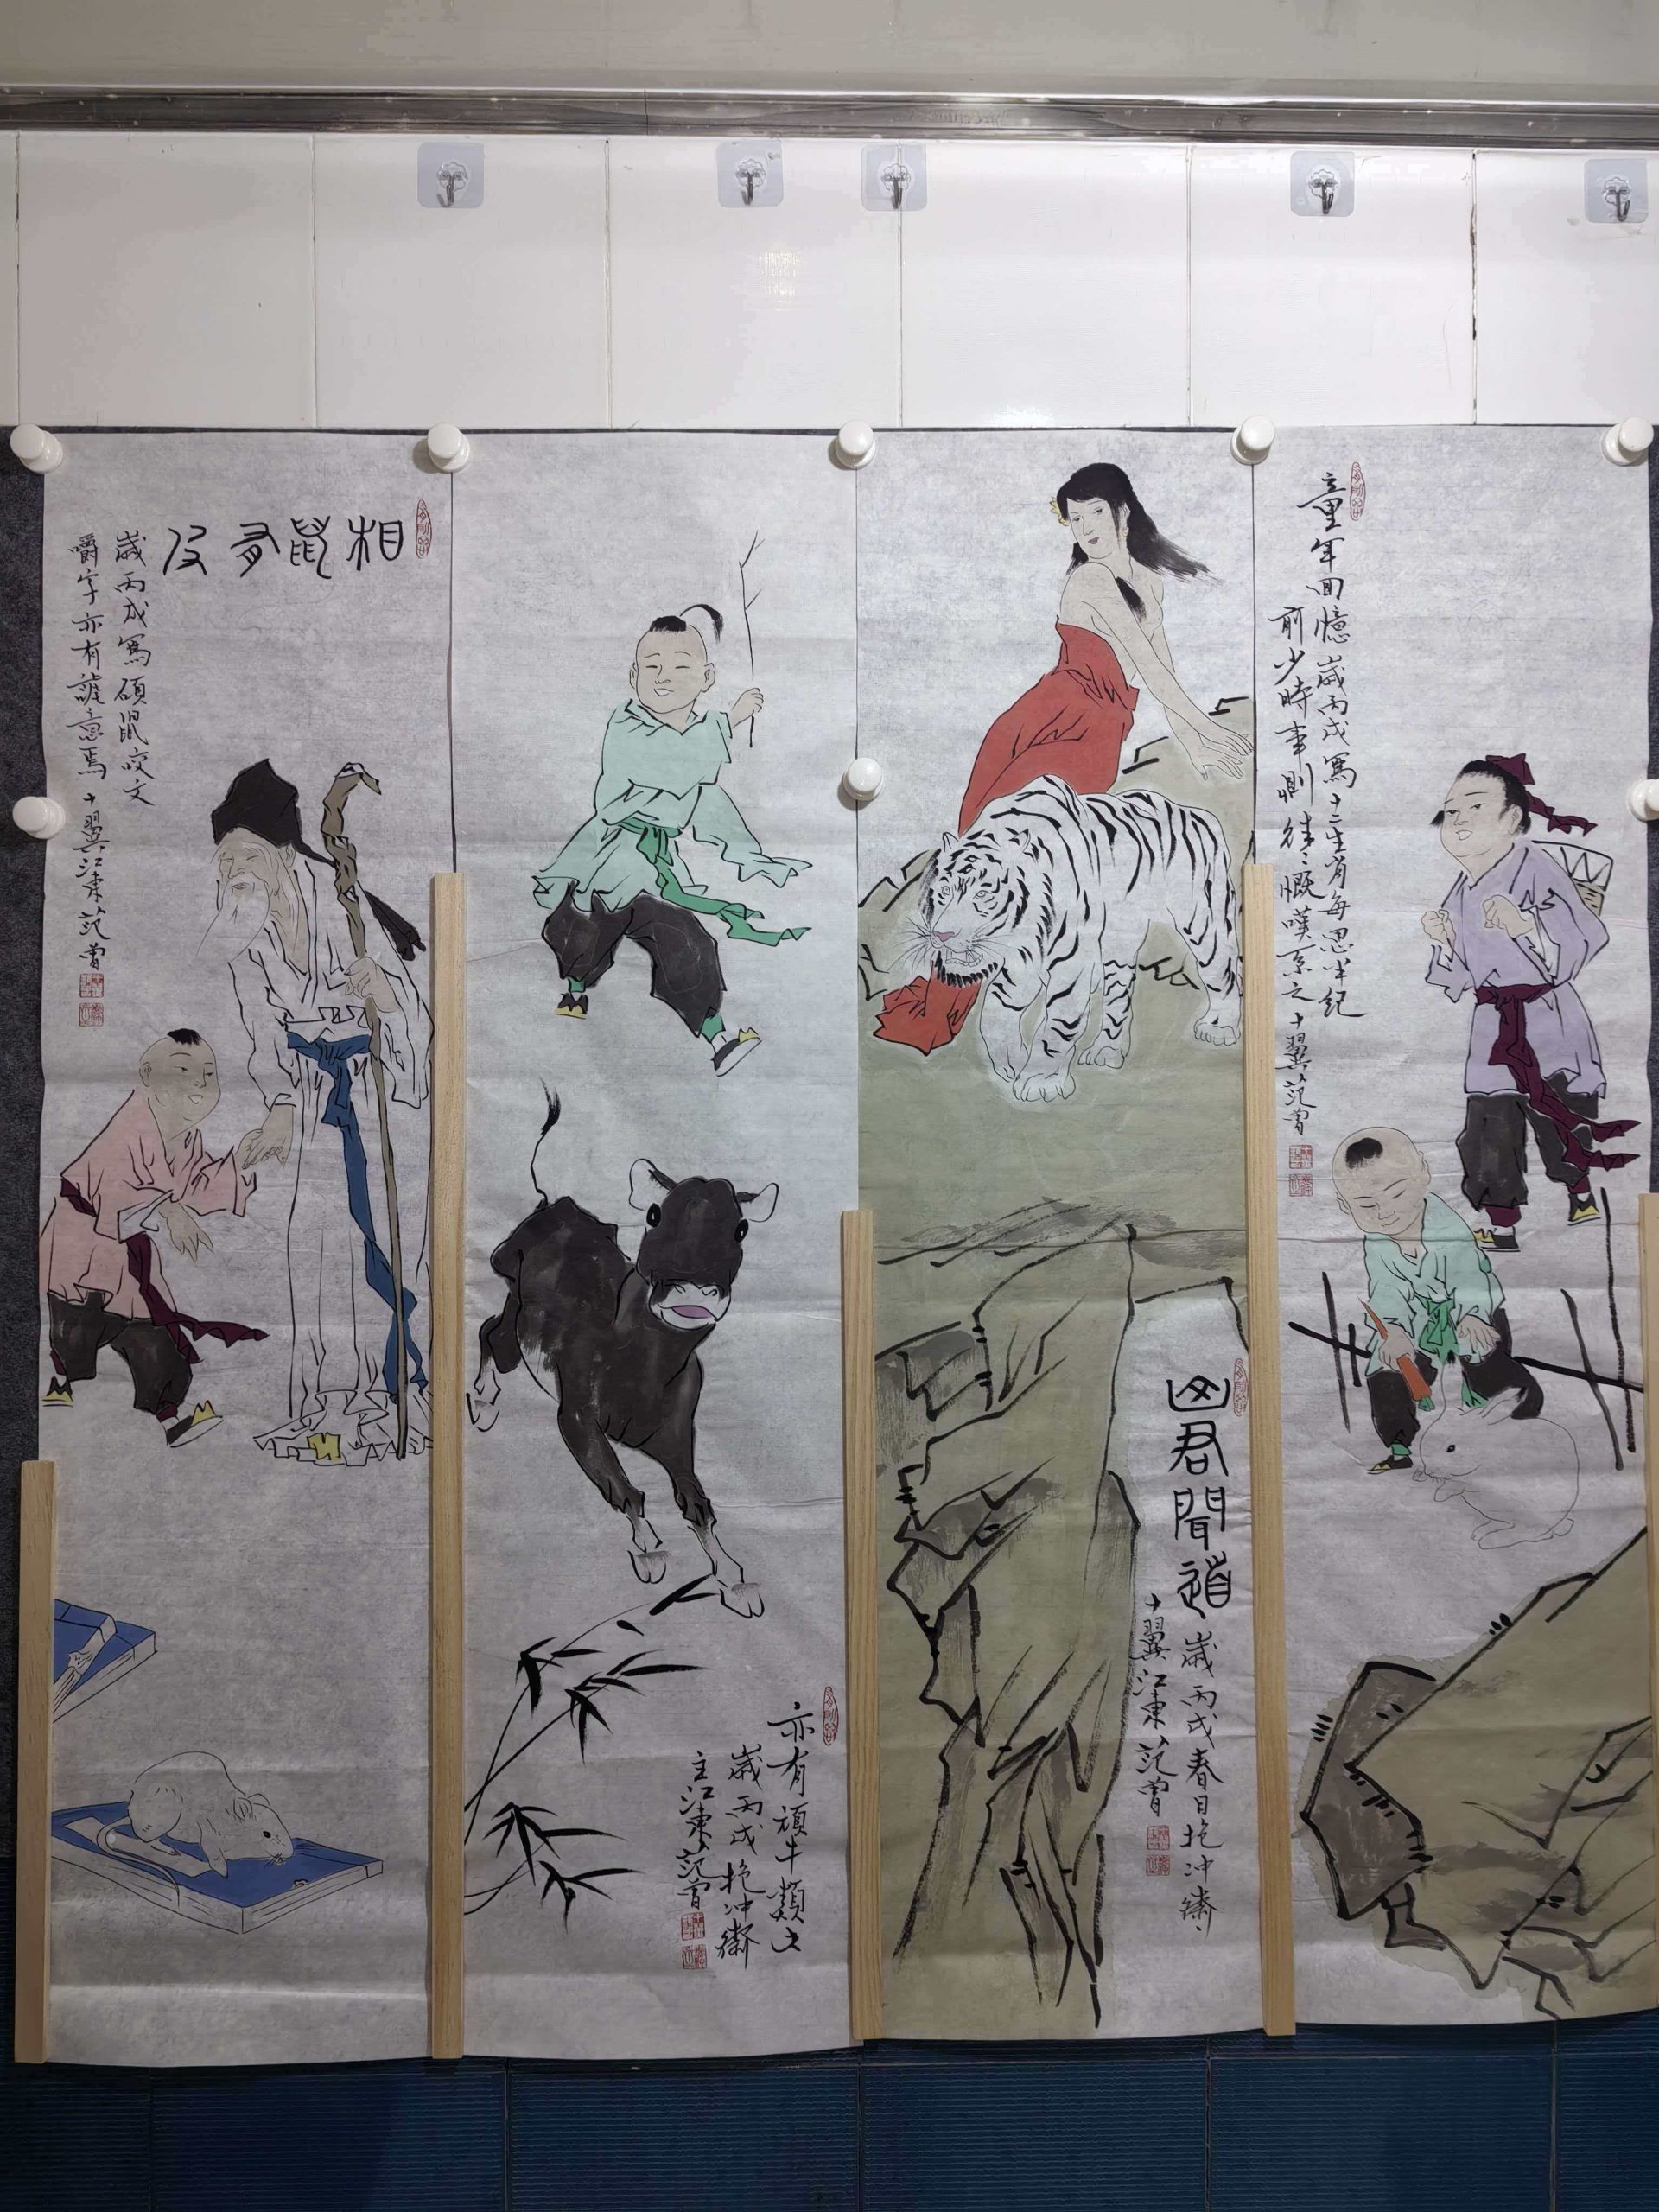 相鼠有皮
歲丙戌寫碩鼠咬文
嚼字亦有謔意焉 十翼江東范曾
亦有頑牛類大
歲丙戌抱冲齋
主江東范曾
山君聞道
歲丙戌春日抱冲齋
十翼江東范曾
童年回憶歲丙戌寫十二生肖每思半紀
前少時事則往々慨嘆系之十翼范曾